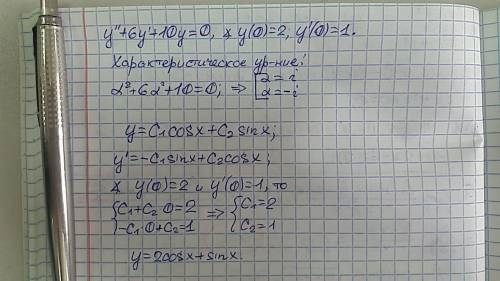 y''+6y'+10y=0, ∡ y(0)=2, y'(0)=1.
Характеристическое ур-ние:
α²+6α+10=0; ⇒ [α=i
α=-i
y=C₁cosx+C₂sinx;
y'=-C₁sinx+C₂cosx;
∡ y(0)=2 и y'(0)=1, то
{C₁+C₂·0=2 ⇒ {C₁=2
-C₁·0+C₂=1 C₂=1
y=2cosx+sinx.